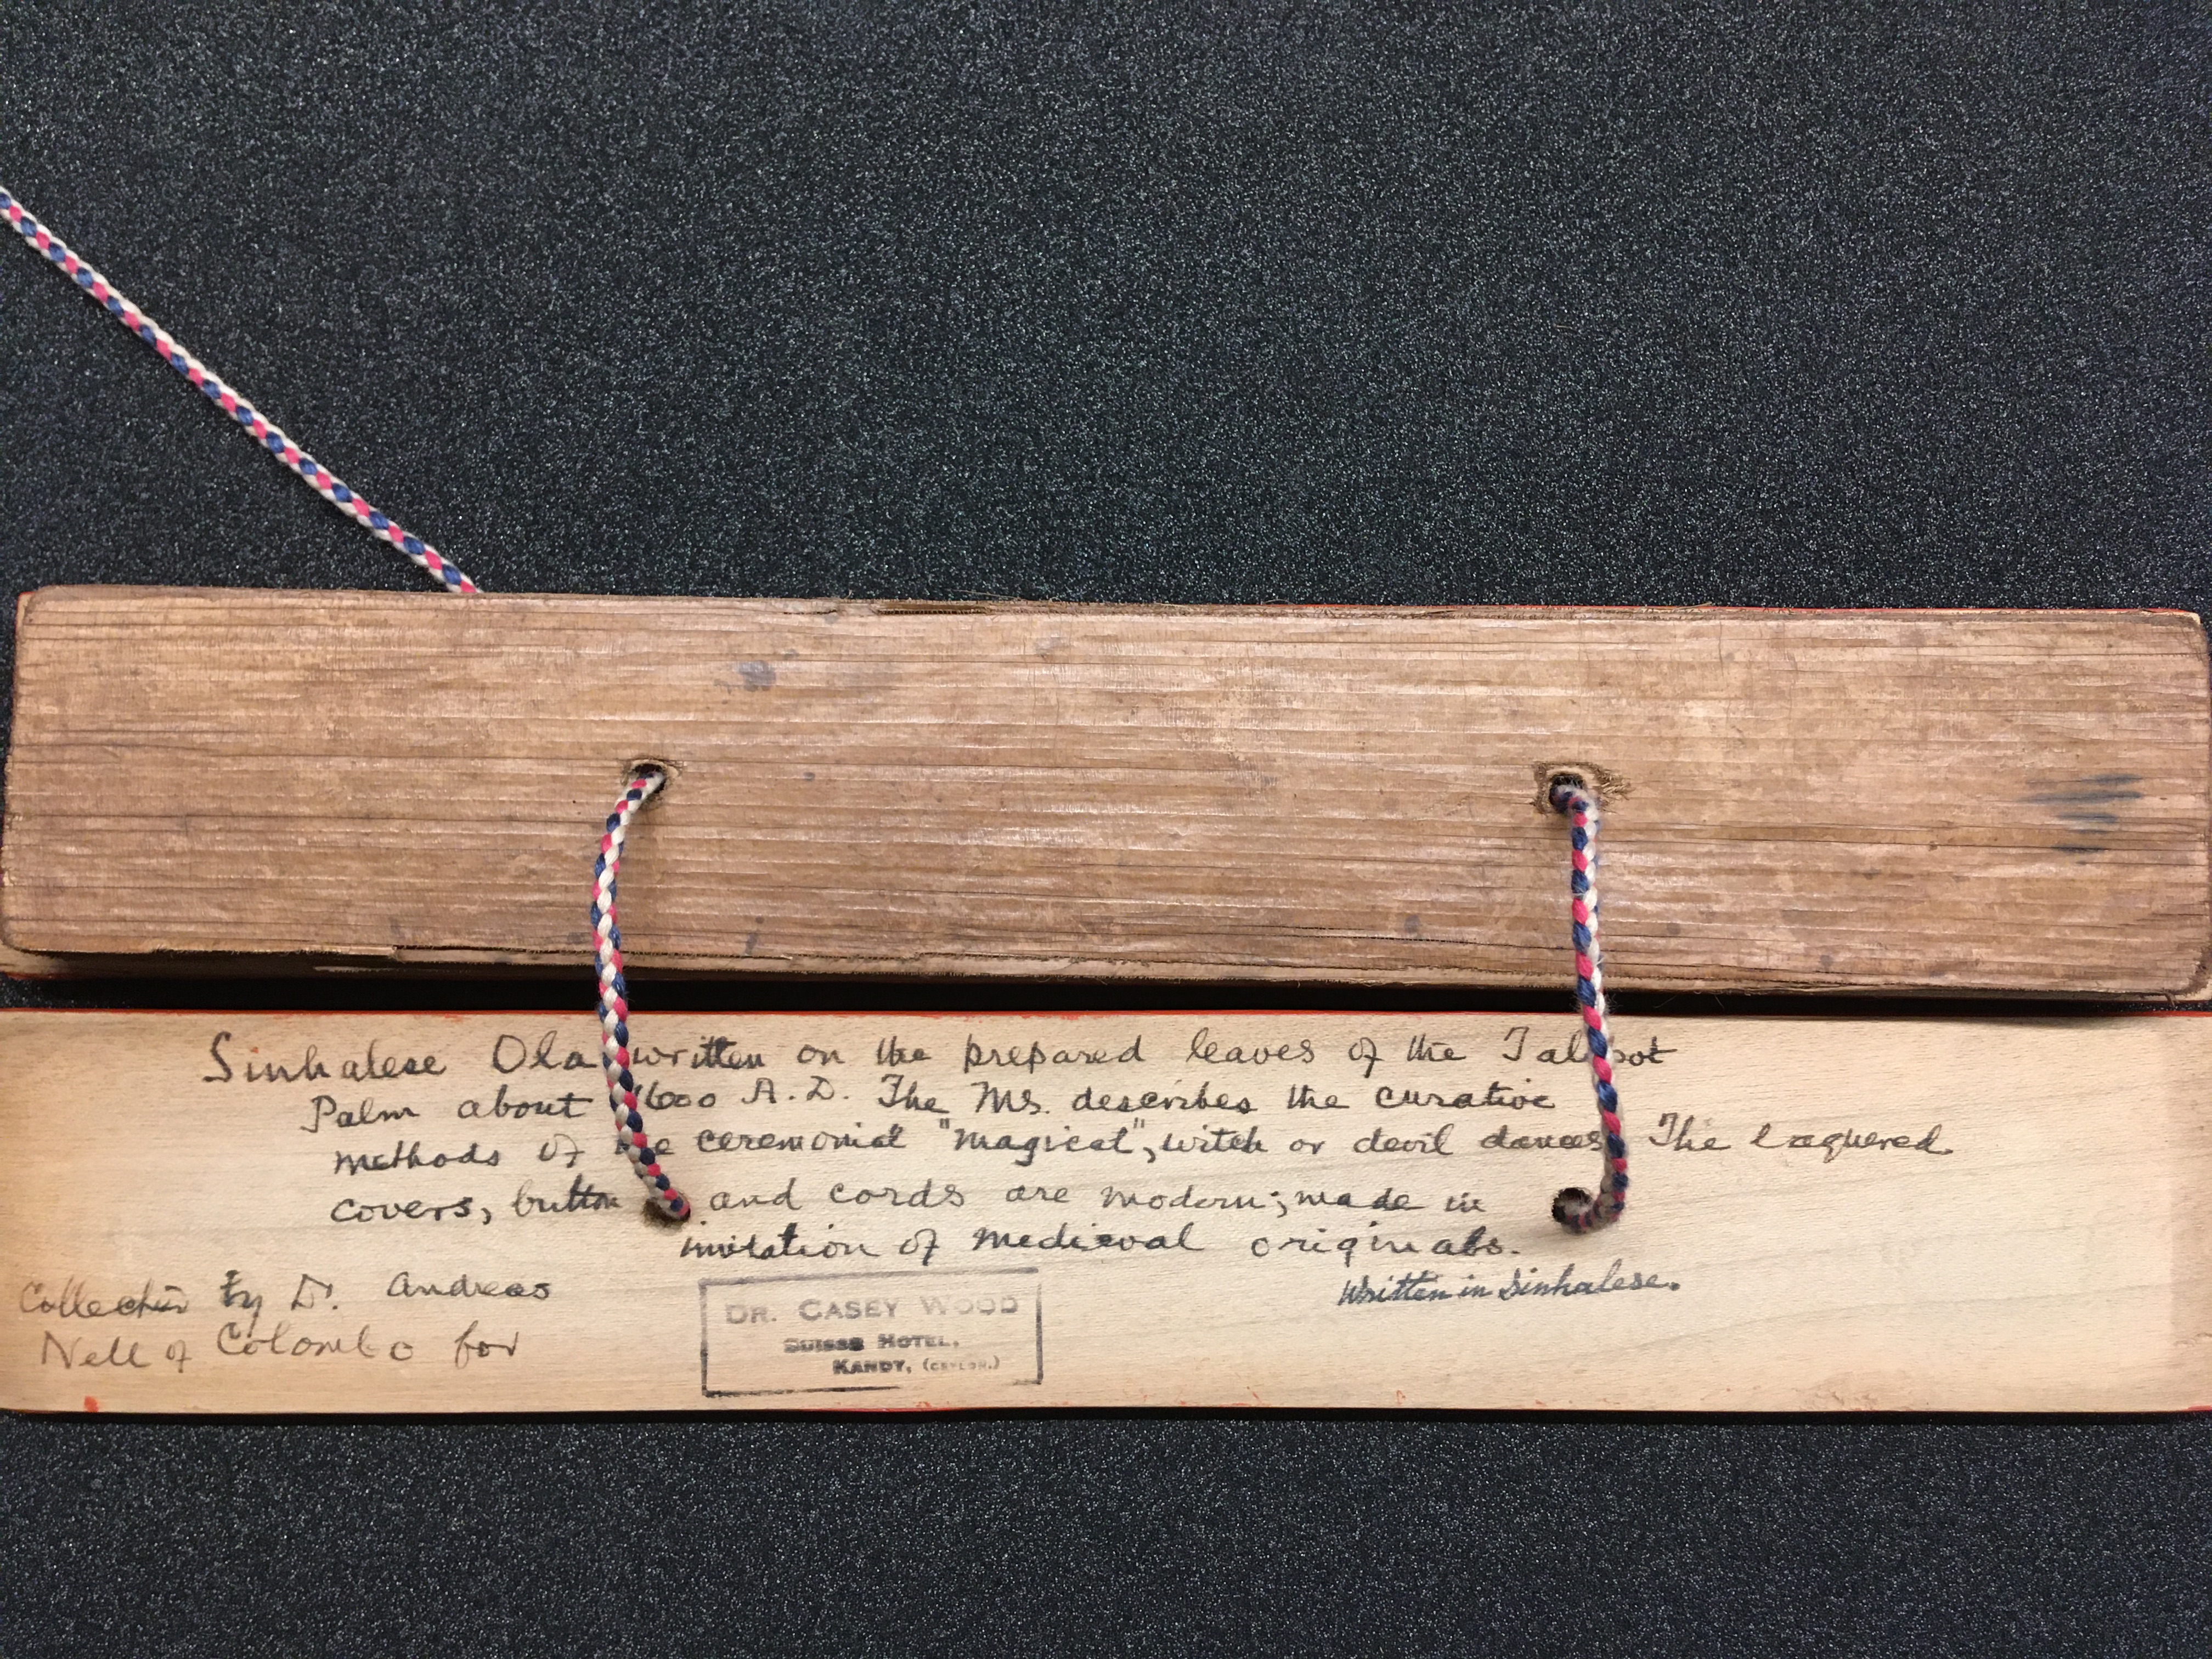 Sinhalese Ola written on the prepared leaves of the Talipot
Palm about 1600 A.D. The Ms. describes the curative
methods of the ceremonial "magical", witch or devil dances. The laquered
covers, button and cords are modern; made in
imitation of medieval originals.
Written in Sinhalese.
Collected by Dr. Andreas
Nell of Colombo for
DR. CASEY WOOD
SUISSE HOTEL,
KANDY, (CEYLON.)